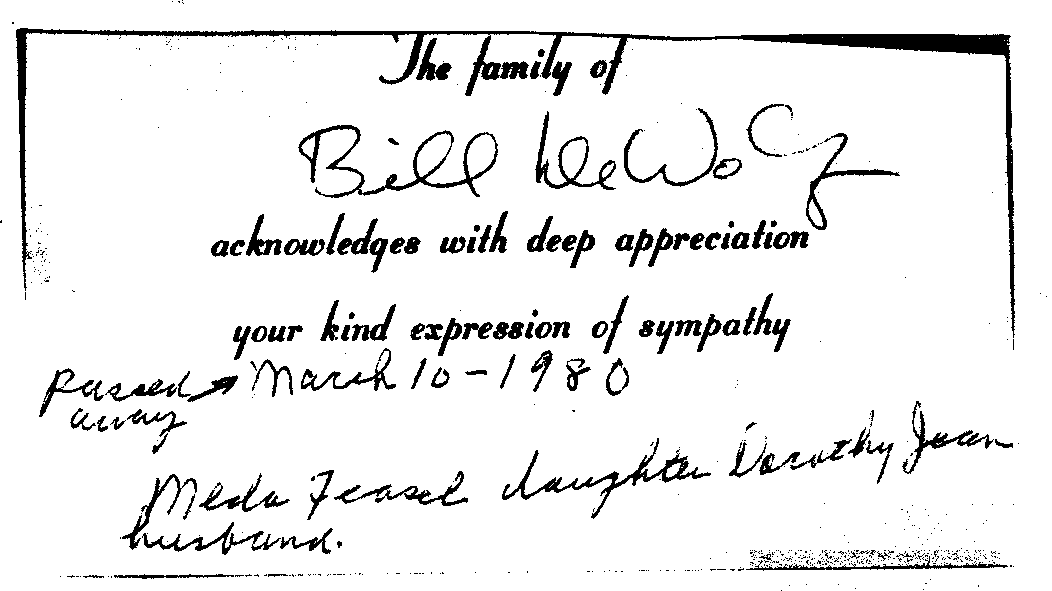 The family of
Bill DeWolf
acknowledges with deep appreciation
your kind expression of sympathy
passed → March 10 - 1980
away
Meda Feasel daughter Dorothy Jean
husband.